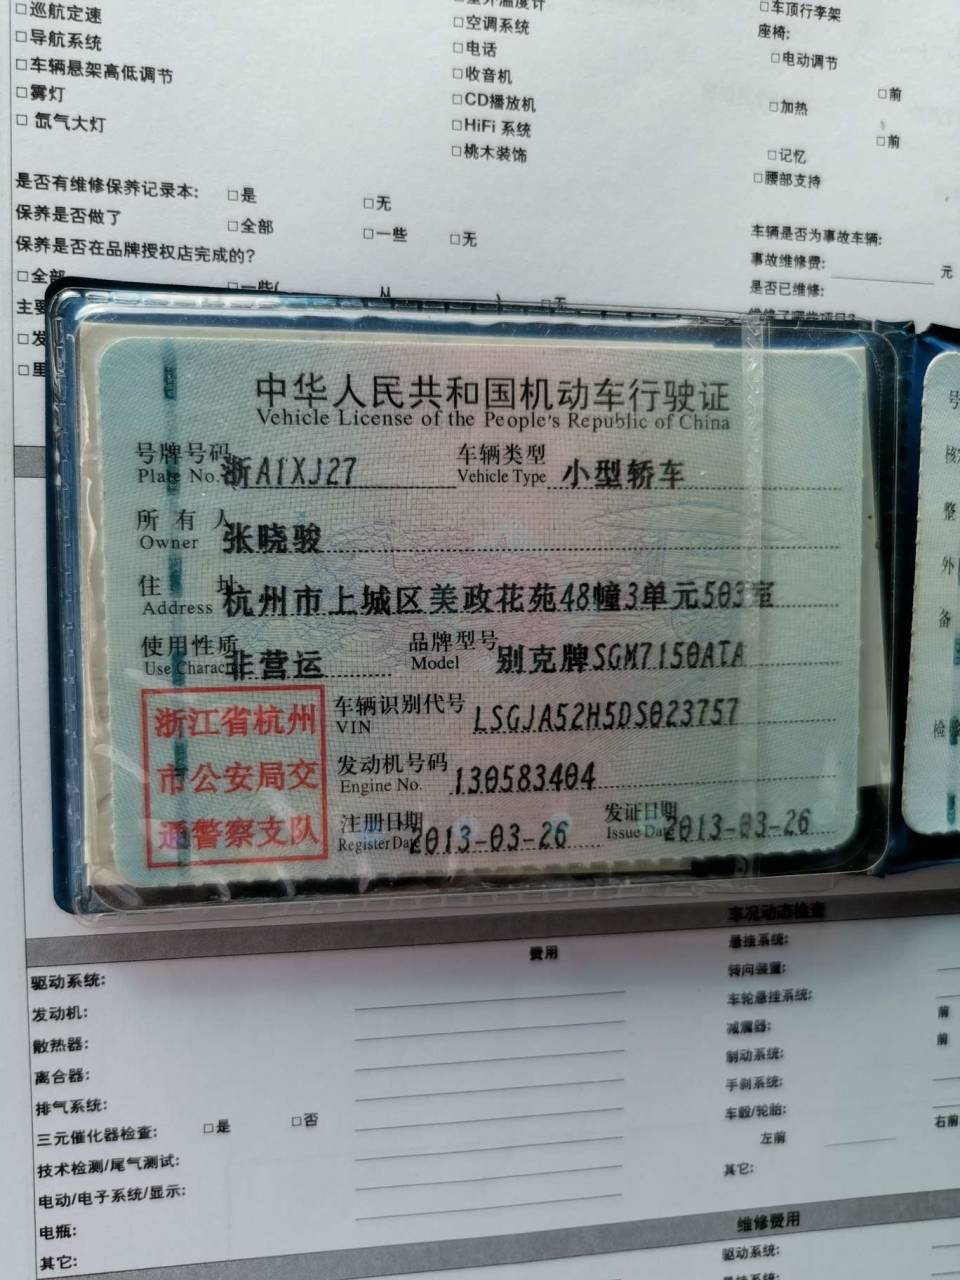 □巡航定速
□导航系统
□车辆悬架高低调节
□雾灯
□ 氙气大灯
□空调系统
□电话
□收音机
□CD播放机
□HiFi 系统
□桃木装饰
□车顶行李架
座椅:
□电动调节
□前
□加热
□前
□记忆
□腰部支持
是否有维修保养记录本: □是 □无
保养是否做了 □全部 □一些 □无
保养是否在品牌授权店完成的?
□全部 □一些( □无
车辆是否为事故车辆:
事故维修费: 元
是否已维修:
中华人民共和国机动车行驶证
Vehicle License of the People's Republic of China
号牌号码 浙A1XJ27 车辆类型 小型轿车
Plate No. Vehicle Type
所有人 张晓骏
Owner
住址 杭州市上城区美政花苑48幢3单元503室
Address
使用性质 非营运 品牌型号 别克牌SGM7150ATA
Use Charac Model
浙江省杭州
市公安局交
通警察支队
车辆识别代号 LSGJA52H5DS023757
VIN
发动机号码 130583404
Engine No.
注册日期 2013-03-26 发证日期 2013-03-26
Register Date Issue Date
号
核
整
外
备
检
车况动态检查
费用
驱动系统:
发动机:
散热器:
离合器:
排气系统:
三元催化器检查: □是 □否
技术检测/尾气测试:
电动/电子系统/显示:
电瓶:
其它:
悬挂系统:
转向装置:
车轮悬挂系统:
前
减震器:
前
制动系统:
手刹系统:
车毂/轮胎:
左前 右前
其它:
维修费用
驱动系统: